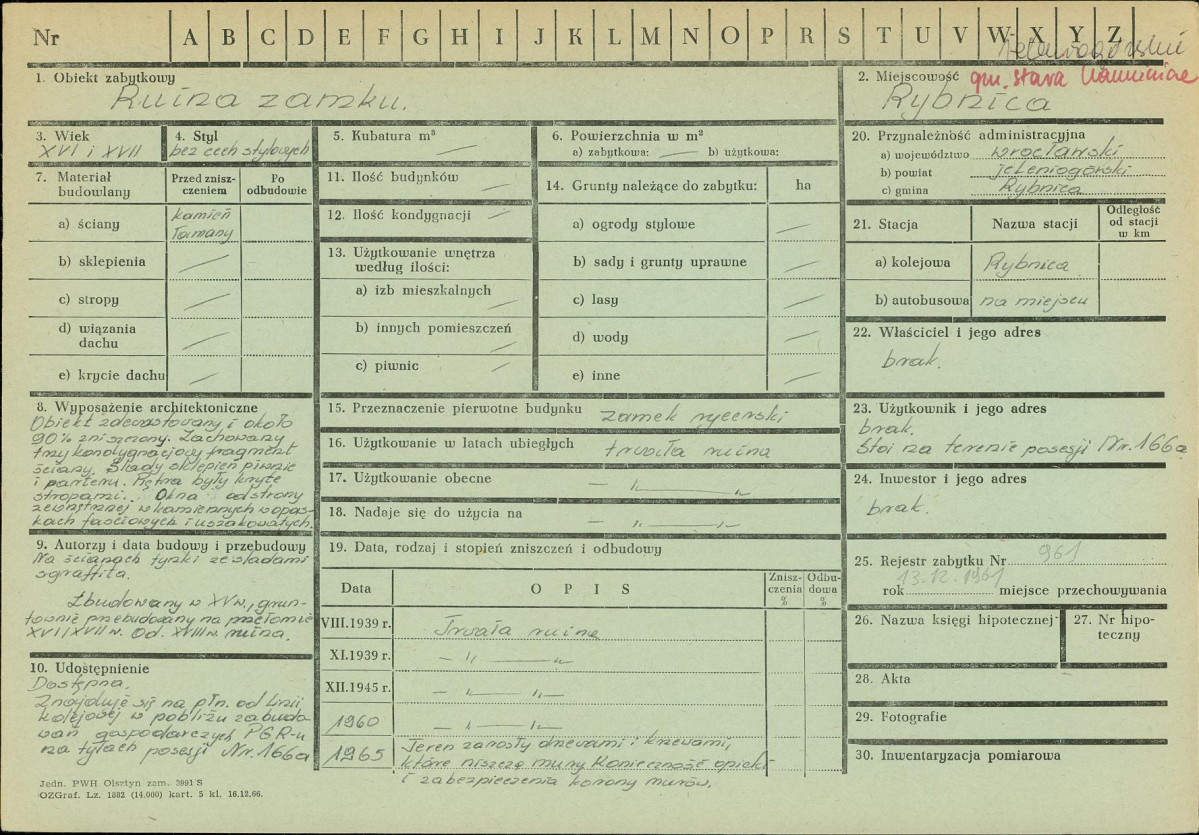 Nr A B C D E F G H I J K L M N O P R S T U V W X Y Z
gm. Stara Kamienica
1. Obiekt zabytkowy
Ruina zamku.
2. Miejscowość
Rybnica
3. Wiek
XVI i XVII
4. Styl
bez cech stylowych
5. Kubatura m³
6. Powierzchnia w m²
a) zabytkowa: b) użytkowa:
7. Materiał budowlany
Przed zniszczeniem
Po odbudowie
a) ściany
kamień
łamany
b) sklepienia
c) stropy
d) wiązania dachu
e) krycie dachu
11. Ilość budynków
12. Ilość kondygnacji
13. Użytkowanie wnętrza
według ilości:
a) izb mieszkalnych
b) innych pomieszczeń
c) piwnic
14. Grunty należące do zabytku: ha
a) ogrody stylowe
b) sady i grunty uprawne
c) lasy
d) wody
e) inne
20. Przynależność administracyjna
a) województwo wrocławski
b) powiat jeleniogórski
c) gmina Rybnica
21. Stacja
Nazwa stacji
Odległość od stacji w km
a) kolejowa Rybnica
b) autobusowa na miejscu
22. Właściciel i jego adres
brak.
8. Wyposażenie architektoniczne
Obiekt zdewastowany i około
90% zniszczony. Zachowany
trzykondygnacjowy fragment
ściany. Ślady sklepień piwnic
i parteru. Piętra były kryte
stropami. Okna od strony
zewnętrznej w kamiennych w opas-
kach fasciowych i uszakowatych.
9. Autorzy i data budowy i przebudowy
Na ścianach tynki ze śladami
sgraffita.
Zbudowany w XV w., grun-
townie przebudowany na przełomie
XVI i XVII w. Od. XVIII w. ruina.
10. Udostępnienie
Dostępna.
Znajduje się na płn. od linii
kolejowej w pobliżu zabudo-
wań gospodarczych PGR-u
na tyłach posesji Nr. 166a
15. Przeznaczenie pierwotne budynku zamek rycerski
16. Użytkowanie w latach ubiegłych trwała ruina
17. Użytkowanie obecne – " – " –
18. Nadaje się do użycia na – " – " –
19. Data, rodzaj i stopień zniszczeń i odbudowy
Data
O P I S
Zniszczenia %
Odbudowa %
VIII.1939 r. Trwała ruina
XI.1939 r. – " – " –
XII.1945 r. – " – " –
1960 – " – " –
1965 Teren zarosły drzewami i krzewami,
które niszczą mury. Konieczność opieki
i zabezpieczenia korony murów.
23. Użytkownik i jego adres
brak.
Stoi na terenie posesji Nr. 166a
24. Inwestor i jego adres
brak.
25. Rejestr zabytku Nr 961
13.12.1961
rok miejsce przechowywania
26. Nazwa księgi hipotecznej
27. Nr hipoteczny
28. Akta
29. Fotografie
30. Inwentaryzacja pomiarowa
Jedn. PWH Olsztyn zam. 3991 S
OZGraf. Lz. 1882 (14.000) kart. 5 kl. 16.12.66.